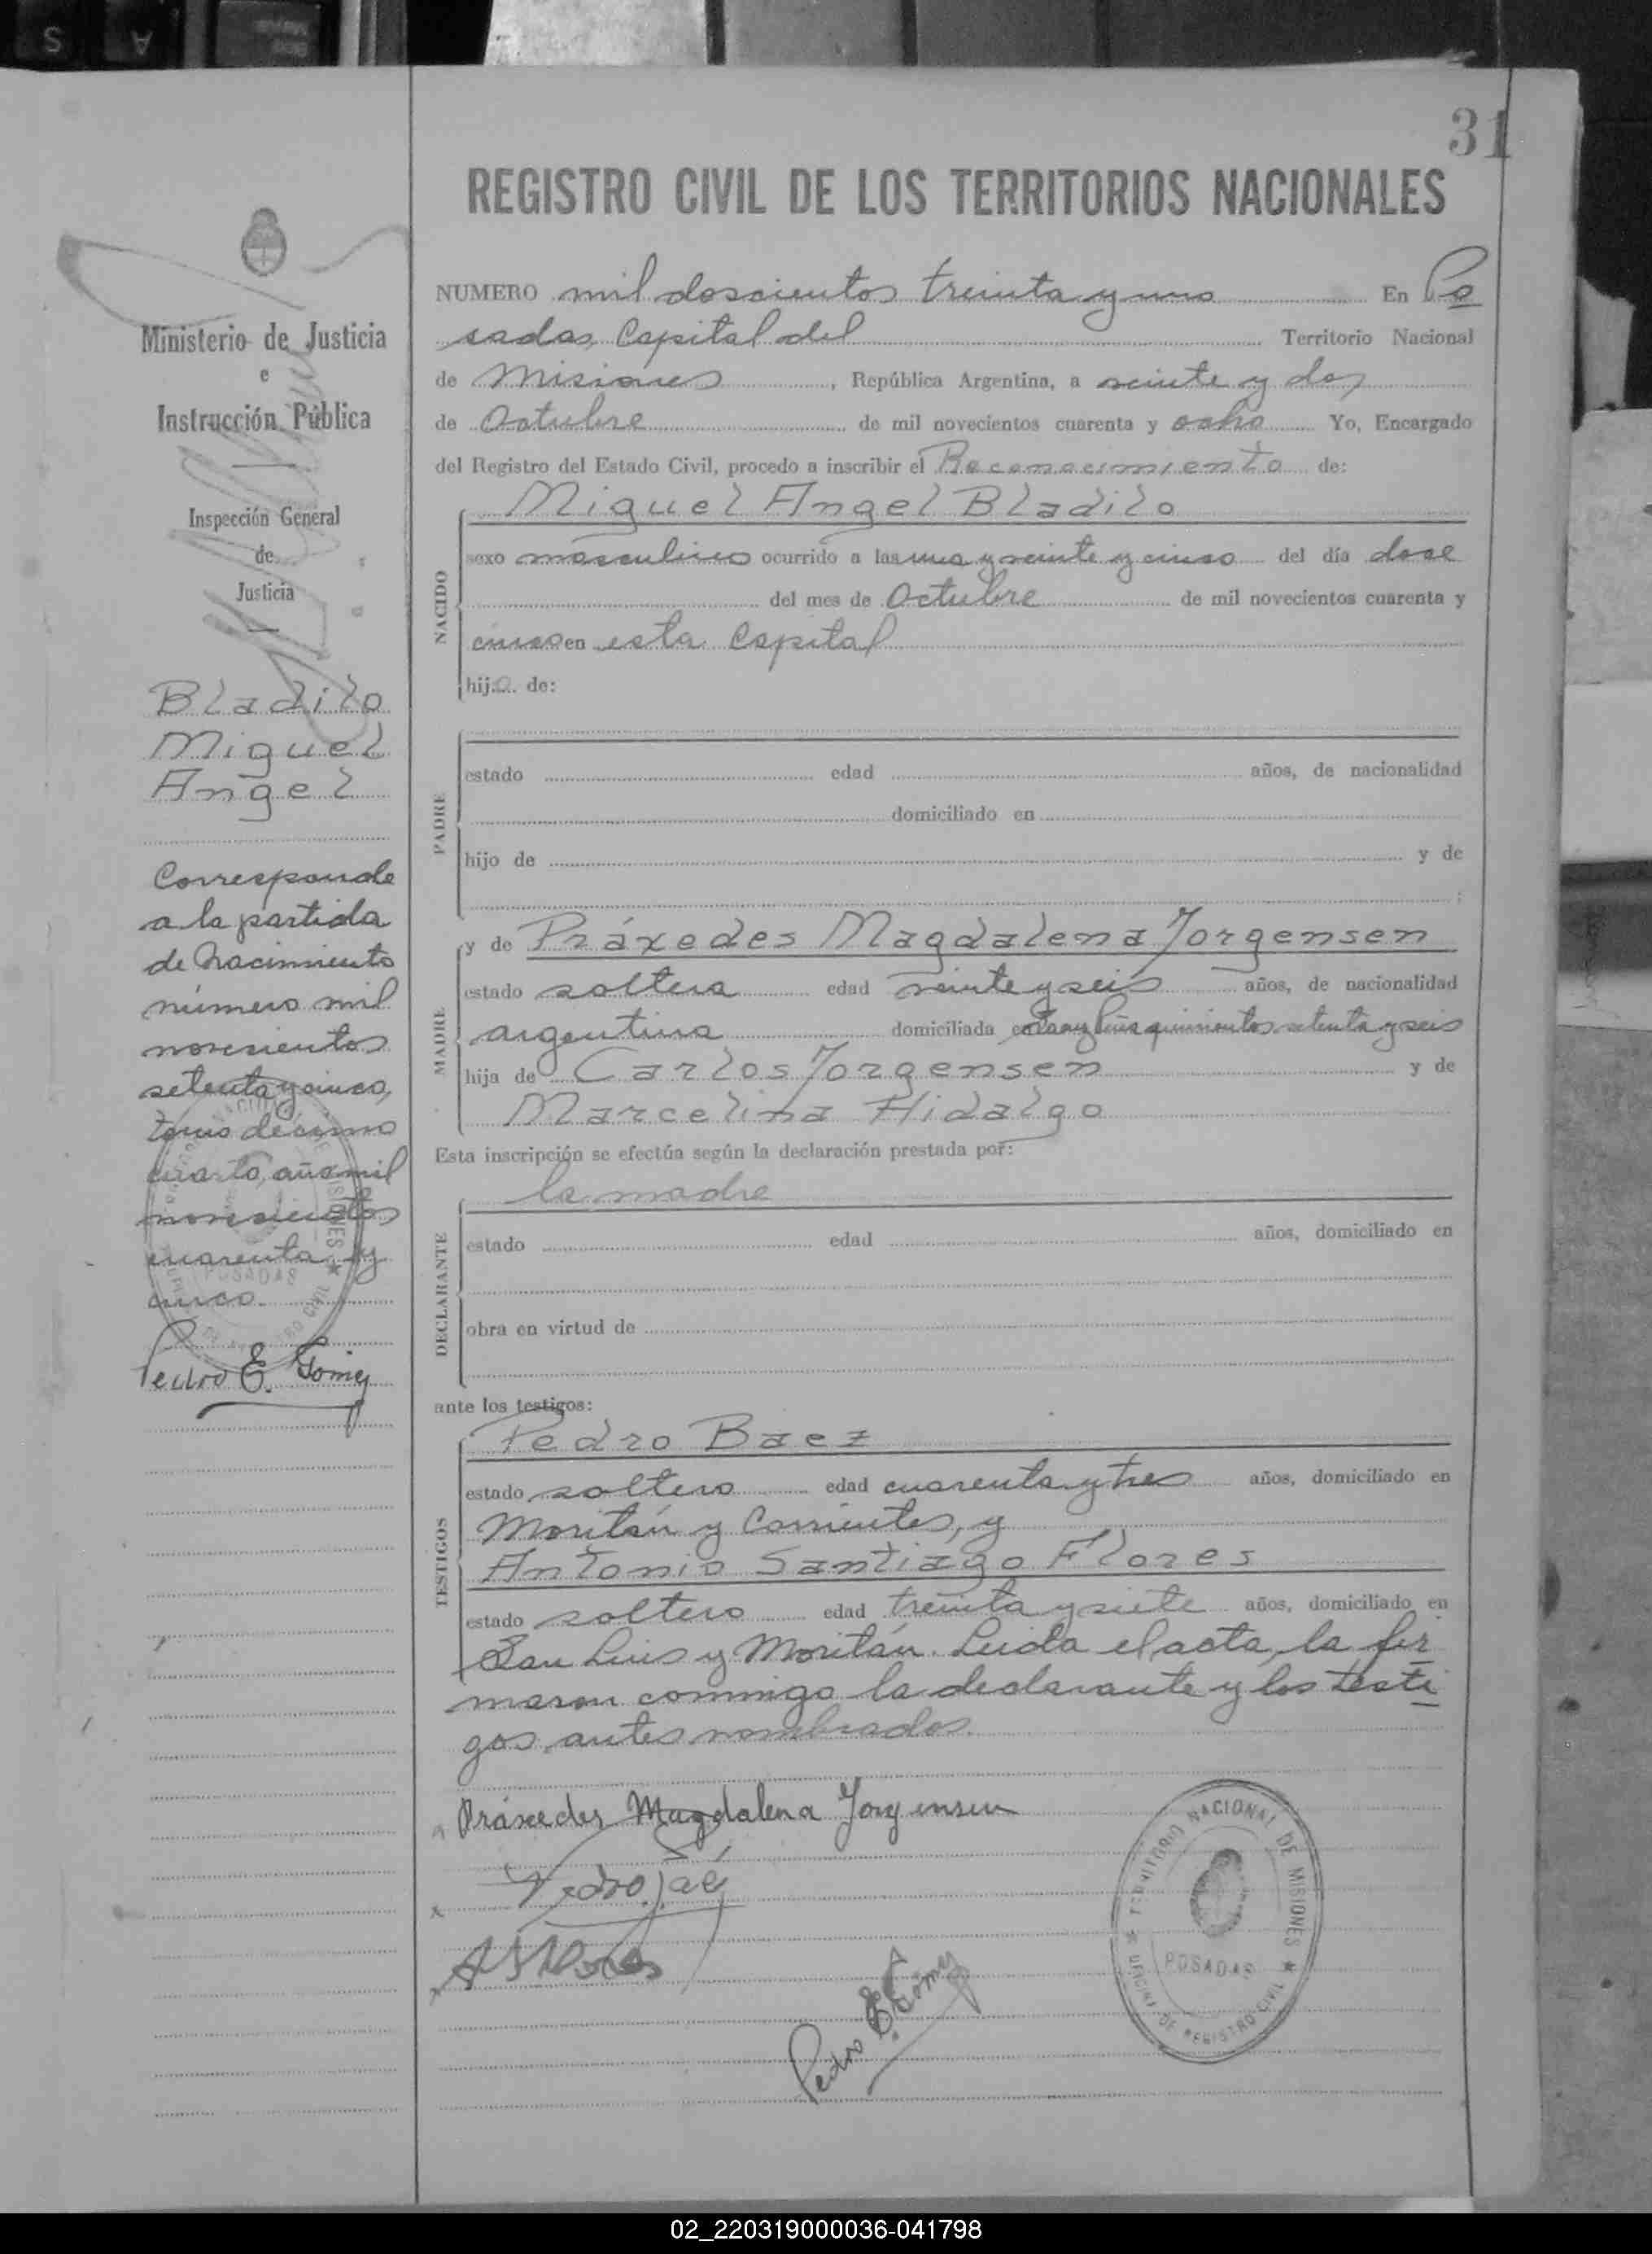 31
REGISTRO CIVIL DE LOS TERRITORIOS NACIONALES
Ministerio de Justicia
e
Instrucción Pública
Inspección General
de
Justicia
Bladilo
Miguel
Angel
Corresponde
a la partida
de Nacimiento
número mil
novecientos
setenta y cinco,
tomo décimo
cuarto, año mil
novecientos
cuarenta y
cinco.
Pedro E. Gomez
NUMERO mil doscientos treinta y uno En Po
sadas, Capital del Territorio Nacional
de Misiones, República Argentina, a veinte y dos
de Octubre de mil novecientos cuarenta y ocho Yo, Encargado
del Registro del Estado Civil, procedo a inscribir el Reconocimiento de:
NACIDO
Miguel Angel Bladilo
sexo masculino ocurrido a las una y veinte y cinco del día doce
del mes de Octubre de mil novecientos cuarenta y
cinco en esta Capital
hijo de:
PADRE
estado edad años, de nacionalidad
domiciliado en
hijo de y de
;
MADRE
y de Práxedes Magdalena Jorgensen
estado soltera edad veinte y seis años, de nacionalidad
argentina domiciliada quinientos setenta y seis
hija de Carlos Jorgensen y de
Marcelina Hidalgo
Esta inscripción se efectúa según la declaración prestada por:
DECLARANTE
la madre
estado edad años, domiciliado en
obra en virtud de
ante los testigos:
TESTIGOS
Pedro Baez
estado soltero edad cuarenta y tres años, domiciliado en
Moritán y Corrientes, y
Antonio Santiago Flores
estado soltero edad treinta y siete años, domiciliado en
San Luis y Moritán. Leida el acta, la fir
maron conmigo la declarante y los testi
gos antes nombrados.
Práxedes Magdalena Jorgensen
Pedro
A S Flores
Pedro E. Gómez
TERRITORIO NACIONAL DE MISIONES
POSADAS
OFICINA DE REGISTRO CIVIL
02_220319000036-041798